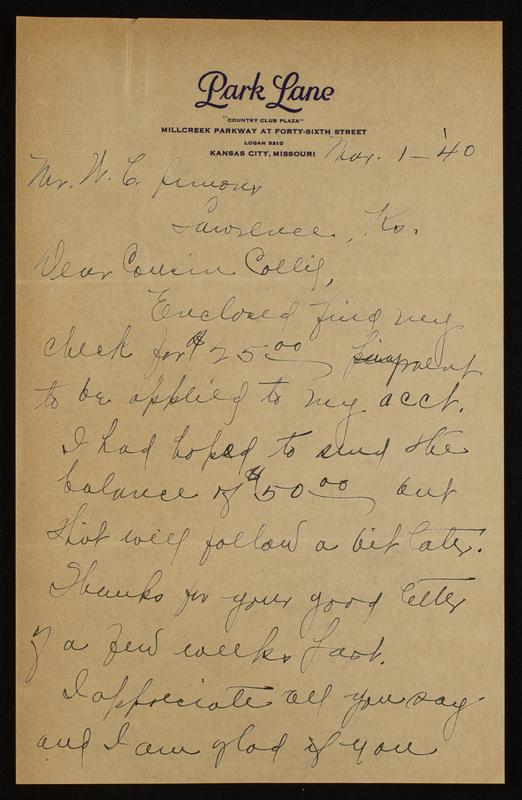 Park Lane
"COUNTRY CLUB PLAZA"
MILLCREEK PARKWAY AT FORTY-SIXTH STREET
LOGAN 5210
KANSAS CITY, MISSOURI
Mar. 1 - '40
Mr. W. C. Simons
Lawrence, Ks.
Dear Cousin
Enclosed find my
check for $25.00
to be applied to my acct.
I had hoped to send the
balance of $50.00 but
that will follow a bit later.
Thanks for your good letter
of a few weeks past.
I appreciate all you say
and I am glad if you